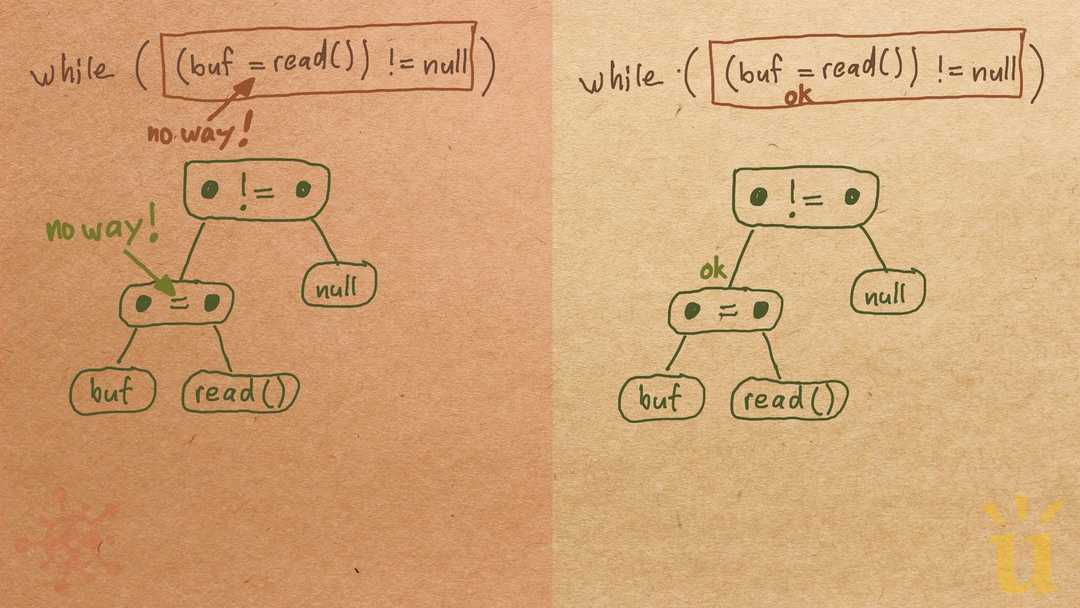 while ( (buf = read()) != null )
no way!
!=
no way!
null
=
buf
read()
while ( (buf = read()) != null )
ok
!=
ok
null
=
buf
read()
u